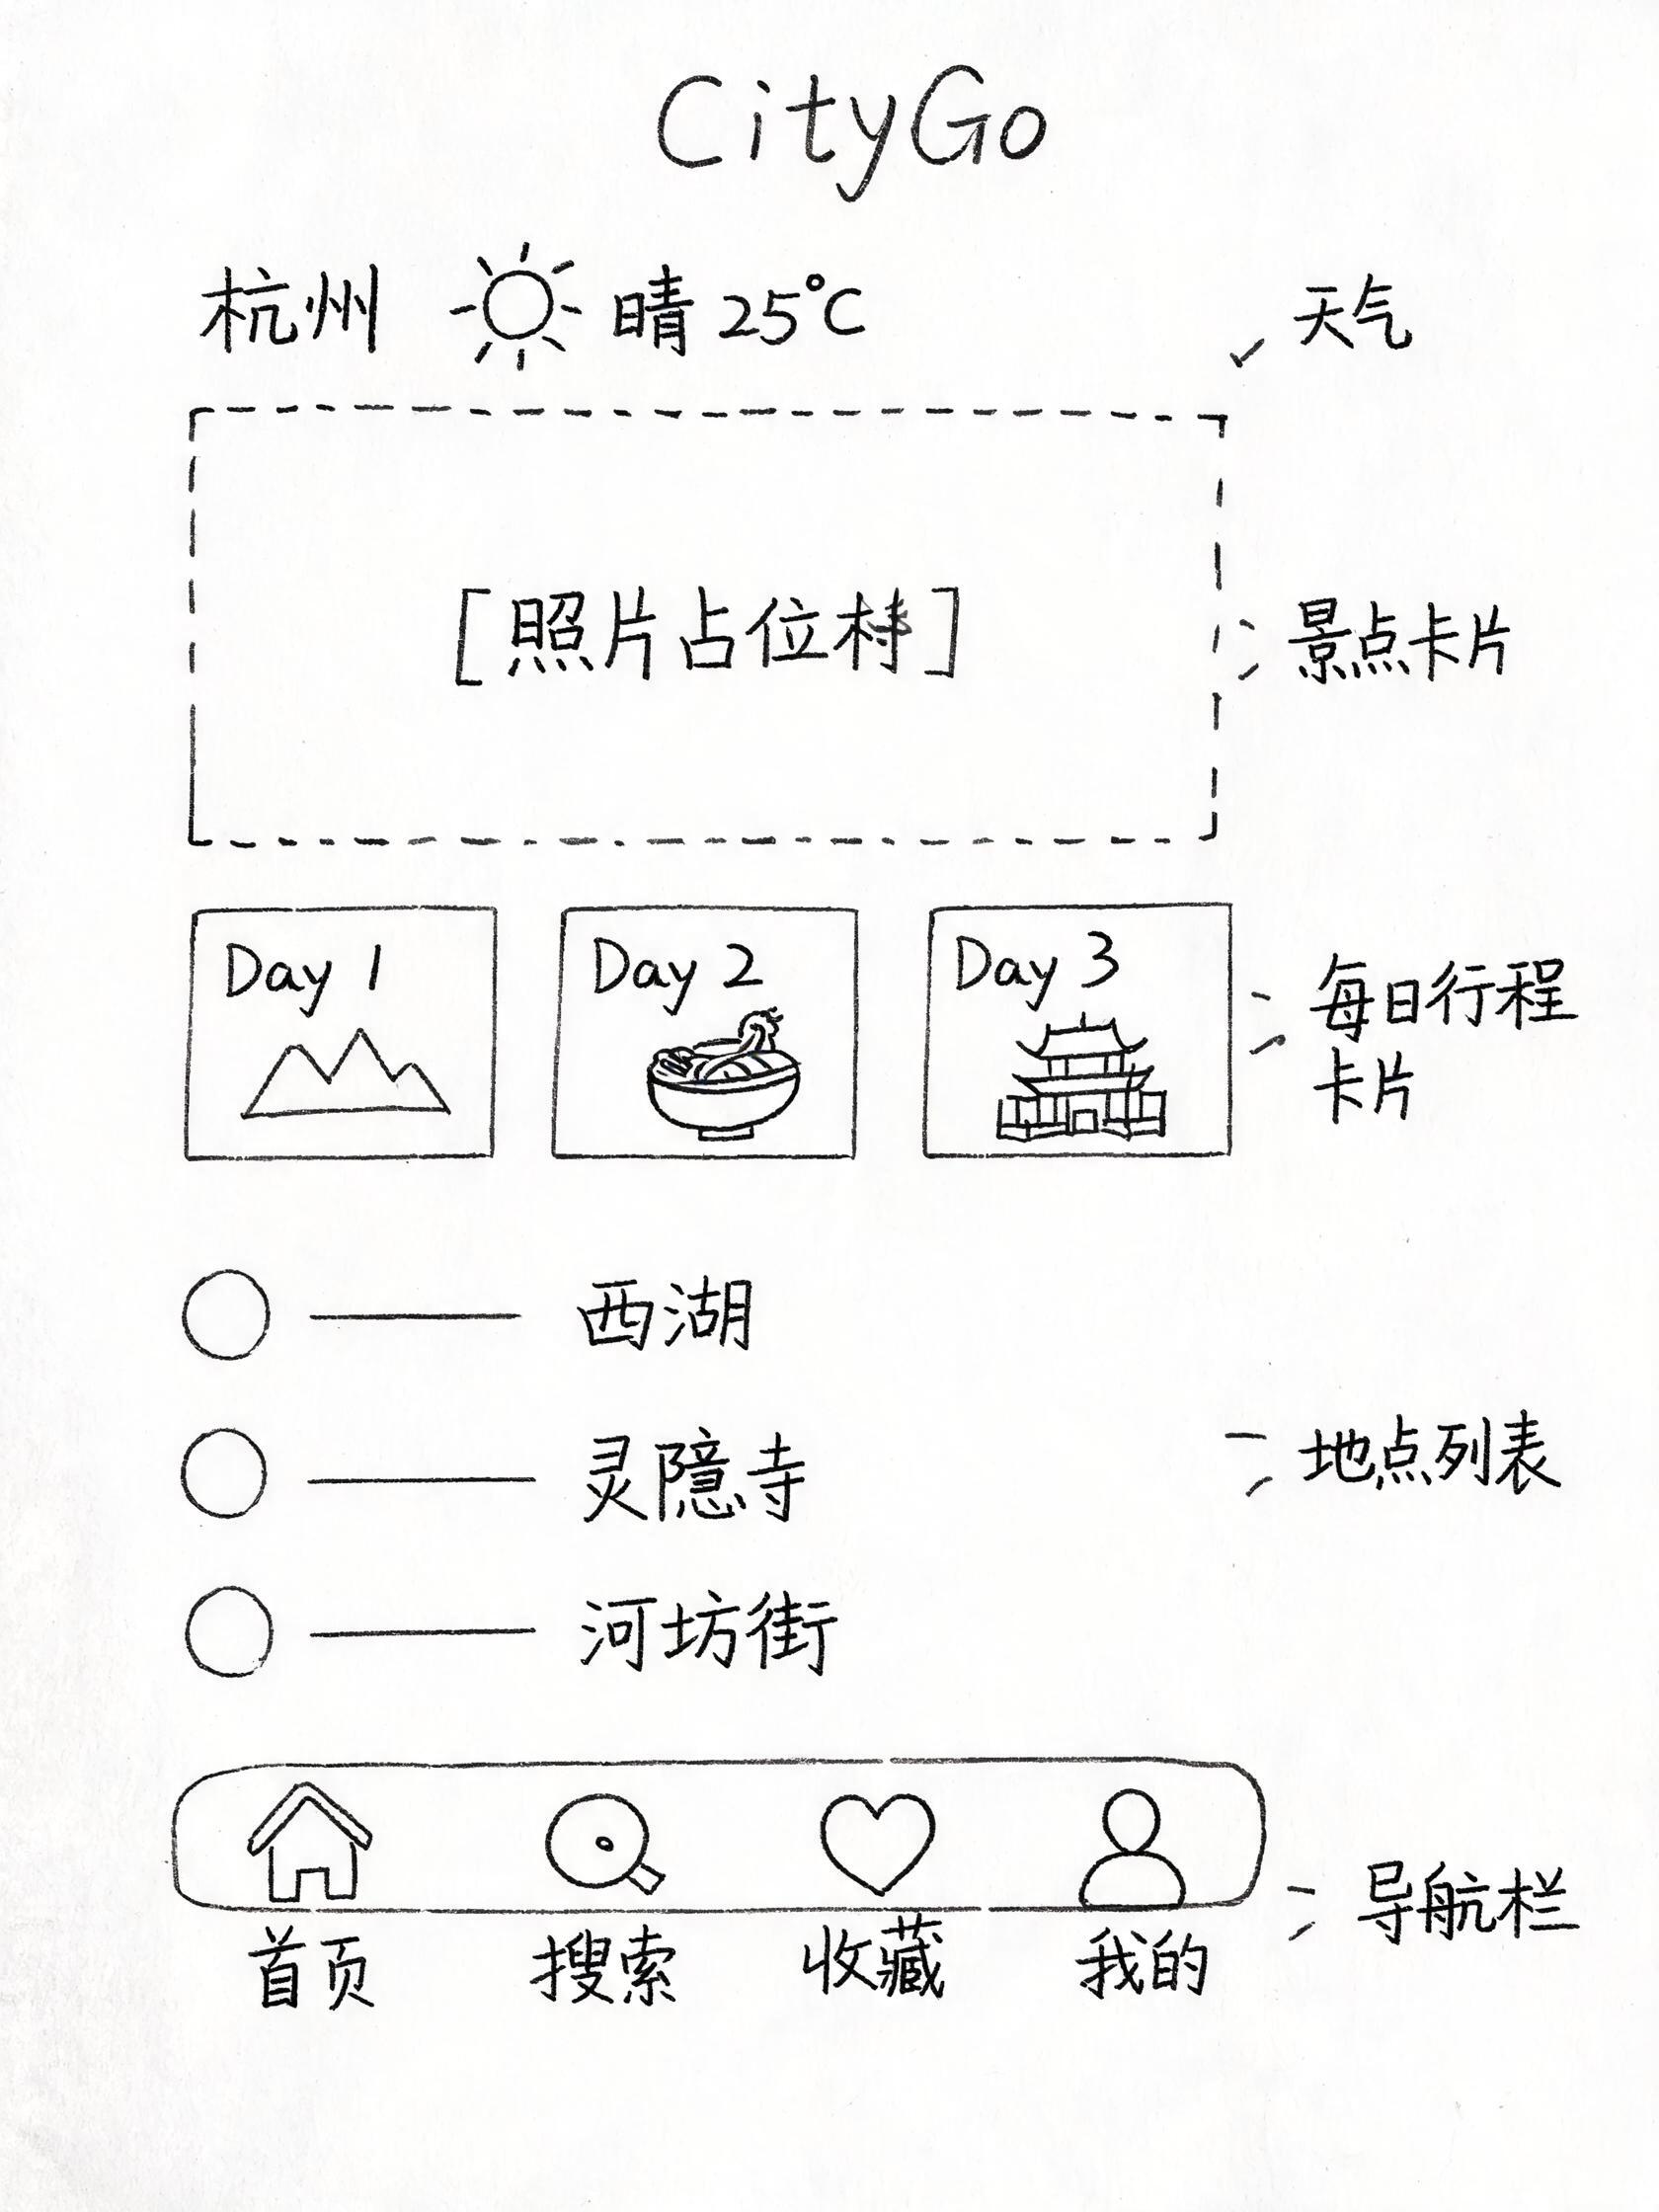 CityGo
杭州 晴 25°C
天气
[照片占位]
景点卡片
Day 1
Day 2
Day 3
每日行程
卡片
西湖
灵隐寺
地点列表
河坊街
导航栏
首页 搜索 收藏 我的